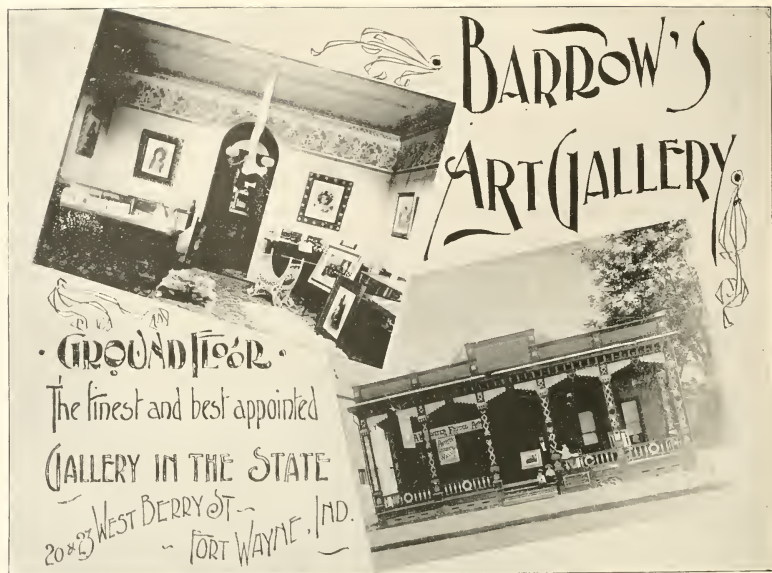 BARROW'S
ART GALLERY
· GROUND FLOOR ·
The finest and best appointed
GALLERY IN THE STATE
20 & 23 WEST BERRY ST ~
~ FORT WAYNE, IND.